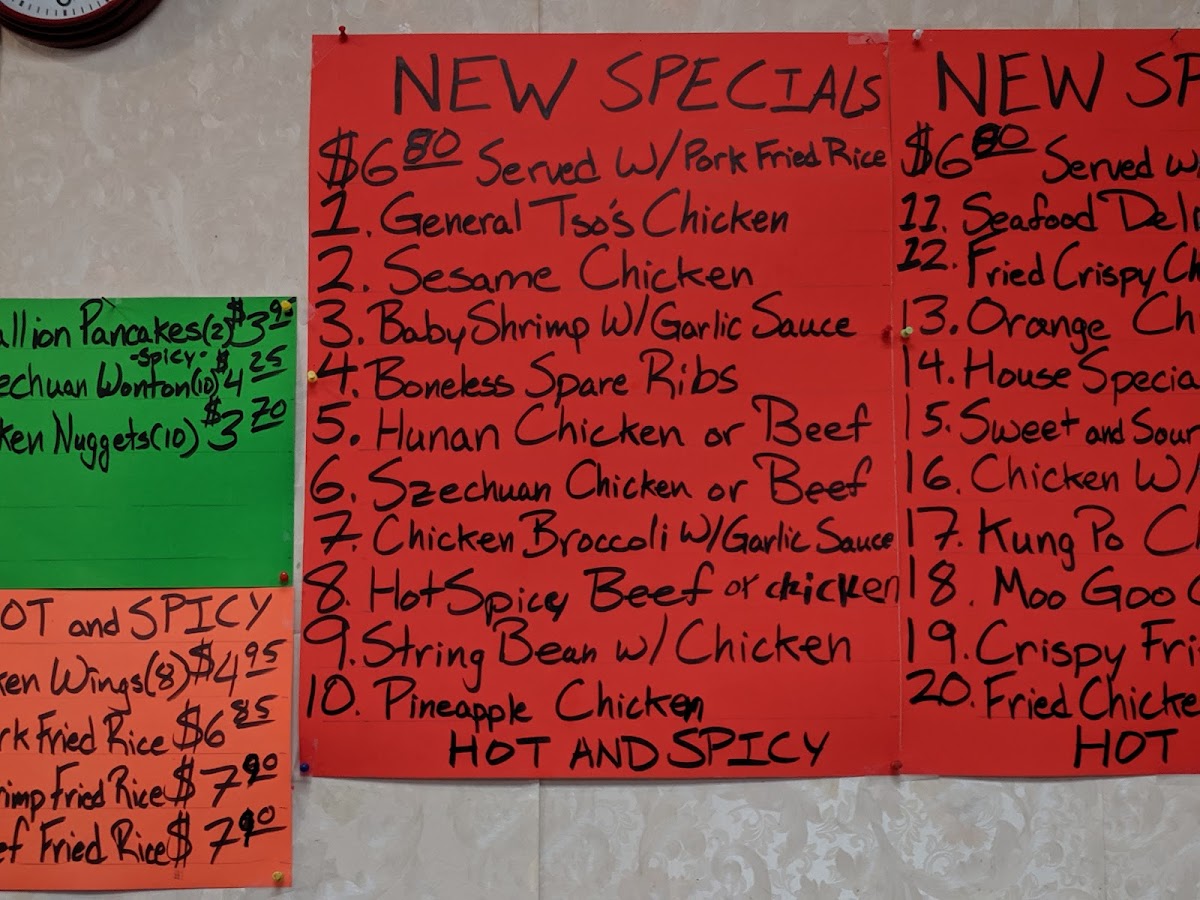 allion Pancakes(2) $3.95
-Spicy-
echuan Wonton(10) $4.25
ken Nuggets(10) $3.70
OT and SPICY
ken Wings(8) $4.95
rk Fried Rice $6.85
rimp Fried Rice $7.90
ef Fried Rice $7.90
NEW SPECIALS
$6.80 Served W/Pork Fried Rice
1. General Tso's Chicken
2. Sesame Chicken
3. Baby Shrimp W/Garlic Sauce
4. Boneless Spare Ribs
5. Hunan Chicken or Beef
6. Szechuan Chicken or Beef
7. Chicken Broccoli W/Garlic Sauce
8. Hot Spicy Beef or chicken
9. String Bean w/ Chicken
10. Pineapple Chicken
HOT AND SPICY
NEW SP
$6.80 Served w
11. Seafood Deli
12. Fried Crispy Ch
13. Orange Ch
14. House Specia
15. Sweet and Sour
16. Chicken W/
17. Kung Po C
18. Moo Goo G
19. Crispy Fri
20. Fried Chicke
HOT